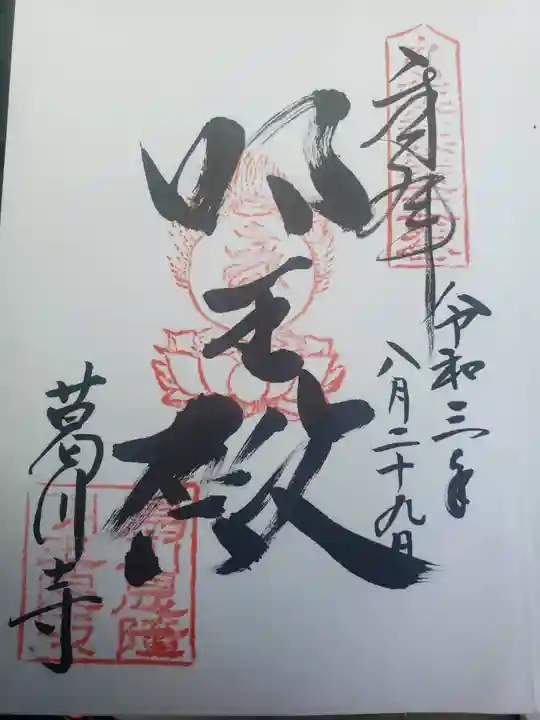 奉拝
令和三年
八月二十九日
明王殿
葛川寺